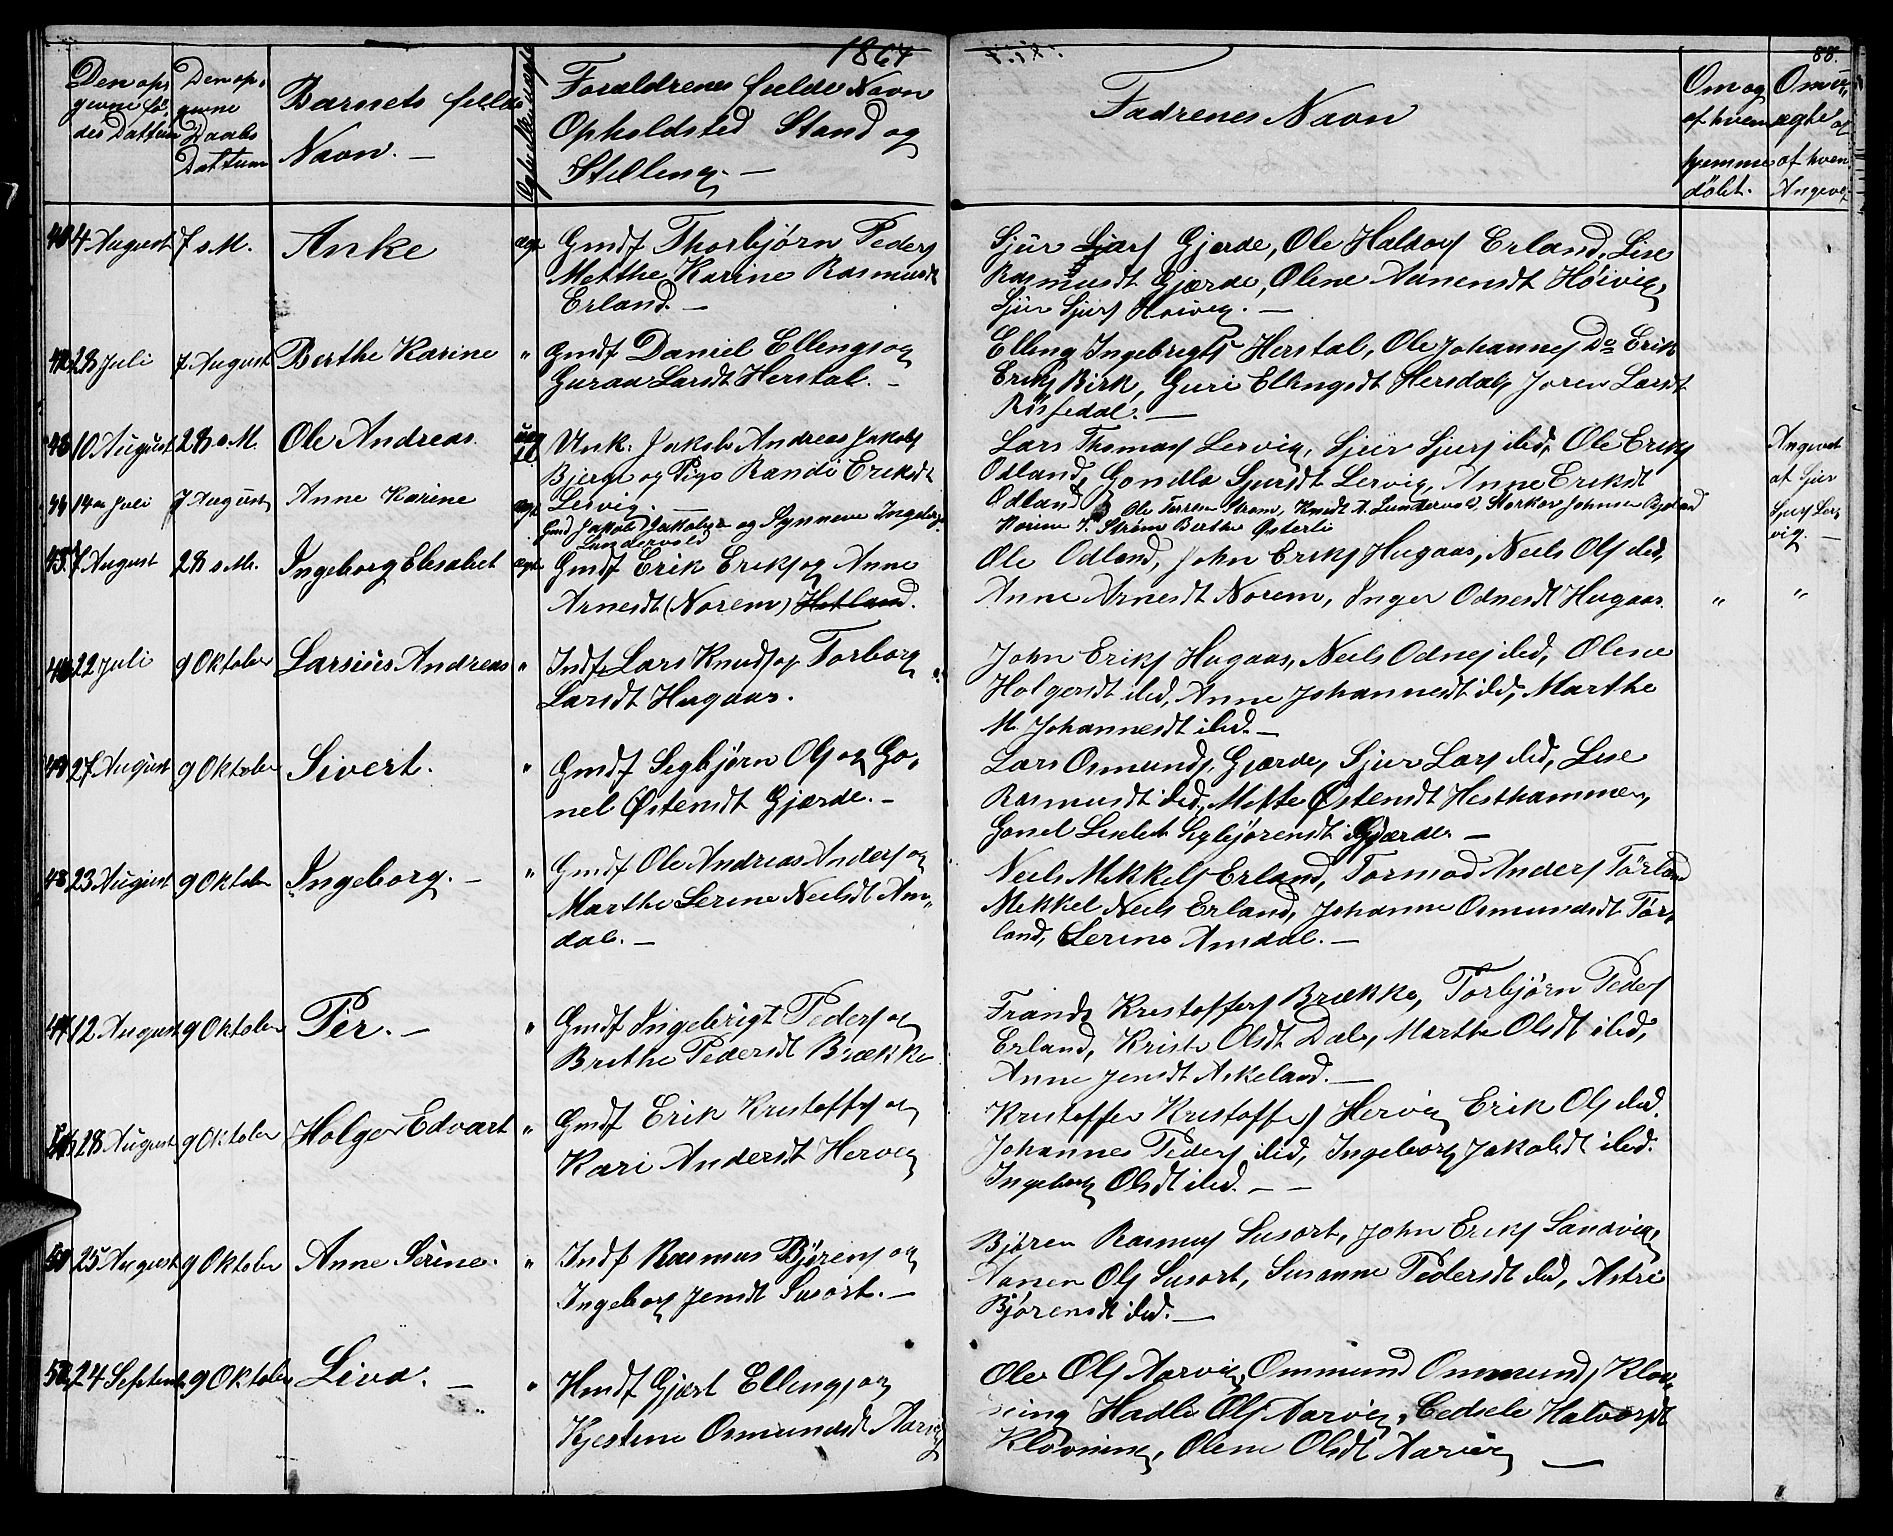 1864
88.
Den op-
givne fø-
des Dattum
Den op-
givne
Daabs
Dattum
Barnets fulde
Navn. —
Forældrenes fulde Navn
Opholdsted Stand og
Stelleng. —
Fadrenes Navn
Om og
af hvem
hjemme
døbt.
af hvem
Angivet
4 August 7 s. M. Anke ægt Gmdf Thorbjørn Peders
Metthe Karine Rasmusdt
Erland. —
Sjur Lars Gjerde, Ole Haldors Erland, Lise
Rasmusdt Gjærde, Olene Aanensdt Høivig,
Sjur Sjurs Høivig. —
28 Juli 7 August Berthe Karine " Gmdf Daniel Ellengs og
Guraa Larsdt Herstal. —
Elleng Ingebrigts Herstal, Ole Johannes Do Erik
Eriks Birk, Guri Ellengsdt Hersdal, Joren Larsdt
10 August 28 s. M. Ole Andreas Unk. Jakob Andreas Jakobs
Bjerge og Pige Randi Eriksdt
Lervig. —
Lars Thomas Lervig, Sjur Sjurs ibid, Ole Eriks
Odland, Gondla Sjursdt Lervig, Anne Eriksdt
Odland
Angivet
af Sjur
Sjurs Ler-
vig. —
44 14 Juli 7 August Anne Karine ægt Gmd Jakob Jakobs og Synneve Ingebrigt
Lundervold
Ole Strøm, Knudt A. Lundervold, Storker Johnsen
Karine T. Strøm Berthe Østerli
45 7 August 28 s. M. Ingeborg Elisabet ægt Gmdf Erik Eriks og Anne
Arnesdt (Norem) Hetland.
Ole Odland, John Eriks Hugaas, Neils Ols ibid,
Anne Arnesdt Norem, Inger Odnesdt Hugaas. " "
46 22 Juli 9 Oktober Larsius Andreas " Indf Lars Knuds og Torborg
Larsdt Hugaas.
John Eriks Hugaas, Neils Odnes ibid, Olene
Holgersdt ibid, Anne Johannesdt ibid, Marthe
M. Johannesdt ibid. —
27 August 9 Oktober Sivert. " Gmdf Segbjørn Ols og Go-
nel Østensdt Gjærde. —
Lars Osmunds Gjærde, Sjur Lars ibid, Lise
Rasmusdt ibid, Mette Østensdt Hesthammer,
Gonel Lisebet Segbjørensdt Gjærde. —
48 23 August 9 Oktober Ingeborg. — " Gmdf Ole Andreas Anders og
Marthe Serine Neilsdt Am-
dal. —
Neils Mikkels Erland, Tormod Anders Førland
Mikkel Neils Erland, Johanne Osmundsdt Før-
land, Serine Amdal. —
12 August 9 Oktober Per. — " Gmdf Ingebrigt Peders og
Brithe Pedersdt Brække
Frands Kristoffers Brække, Torbjørn Peders
Erland, Kristi Olsdt Dale, Marthe Olsdt ibid,
Anne Jensdt Askeland. —
28 August 9 Oktober Holger Edvart " Gmdf Erik Kristoffers og
Kari Andersdt Hervig
Kristoffer Kristoffers Hervig Erik Ols ibid.
Johannes Peders ibid, Ingeborg Jakobsdt ibid.
Ingeborg Olsdt ibid. — —
25 August 9 Oktober Anne Serine. " Indf Rasmus Bjørens og
Ingeborg Jensdt Susort. —
Bjøren Rasmus Susort, John Eriks Sandvig,
Aanen Ols Susort, Susanne Pedersdt ibid, Astri
Bjørensdt ibid. —
50 24 Septembr 9 Oktober Liva. — " Hmdf Gjert Ellengs og
Kjestine Osmundsdt Aarvig
Ole Ols Aarvig, Ommund Ommunds Kløv-
ning Hadle Ols Aarvig, Cedsele Halvorsdt
Kløvning, Olene Olsdt Aarvig —